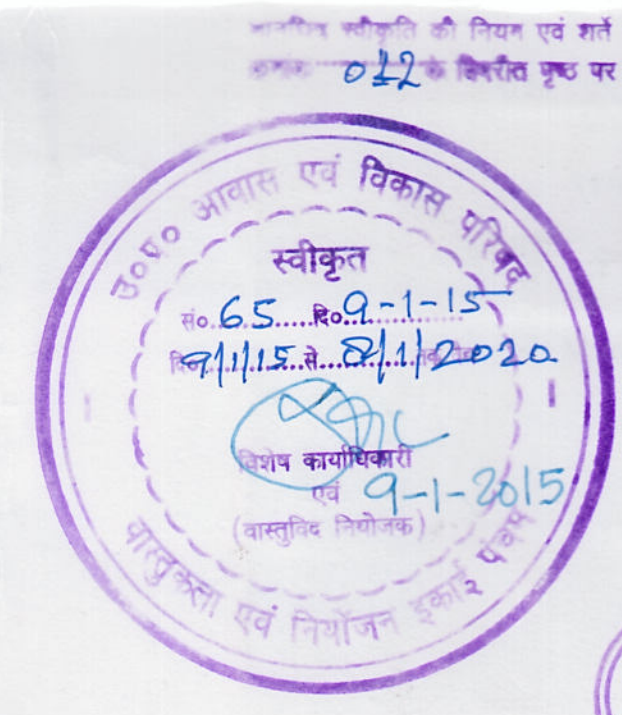 मानचित्र स्वीकृति की नियम एवं शर्ते
क्रमांक 012 के विपरीत पृष्ठ पर
उ०प्र० आवास एवं विकास परिषद
स्वीकृत
सं० 65 दि० 9-1-15
दि० 9/1/15 से 8/1/2020
विशेष कार्याधिकारी
एवं 9-1-2015
(वास्तुविद नियोजक)
वास्तुकला एवं नियोजन इकाई पंचम